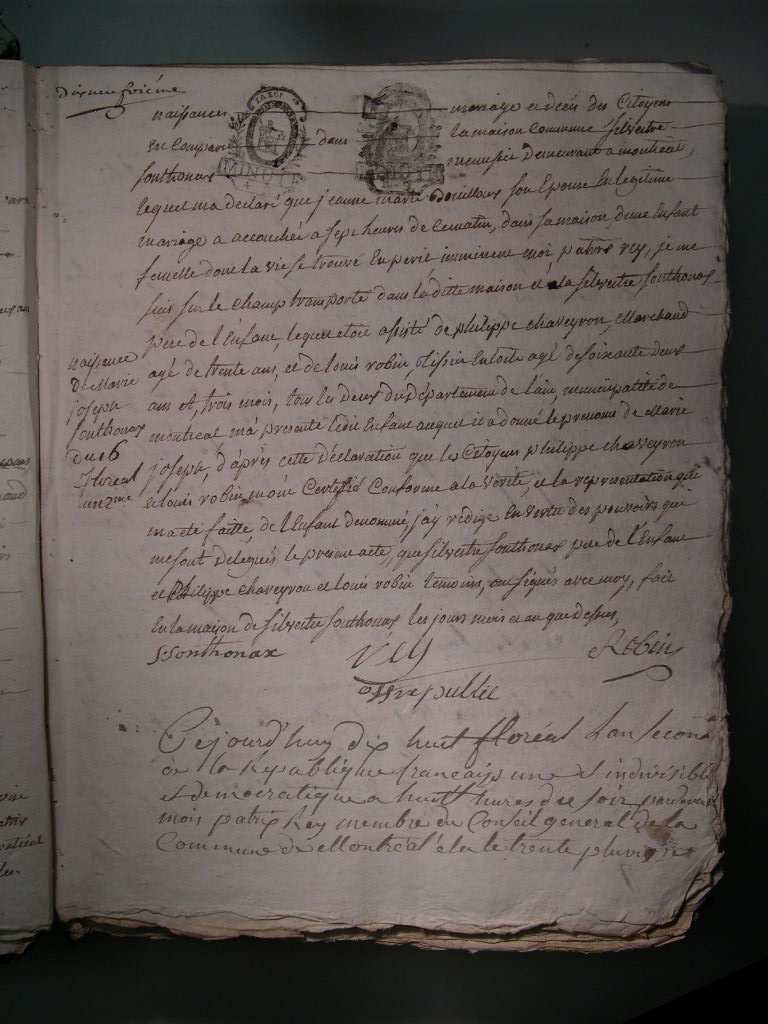 dixneuf vieme
naissances mariage et deces des Citoyens
en Comparu dans la maison Commune Silvestre
MINUTE
sonthonax menusier demeurant a montreal,
lequel ma declaré que jeanne marie son Epouse En legitime
mariage a accouchée a sept heures de Cematin, dans sa maison, dune Enfant
femelle dont la vie se trouve En peril imminent moi patrix rey, je me
suis sur le champ transporté dans la ditte maison et la silvestre sonthonax
pere de l'Enfant, lequel etoit assisté de philippe chaveyron, Marchand
agé de trente ans, et de louis robin tissier En toile agé de soixante deux
ans et trois mois, tous les deux du département de l'ain, municipalité de
montreal m'a presenté ledit Enfant auquel il a donné le prenom de Marie
joseph, d'après cette déclaration que les Citoyens philippe chaveyron
et louis robin m'ont Certifié Conforme a la Verité, et la representation qui
ma eté faitte, de l'Enfant denommé, j'ay rédigé En vertu des pouvoirs qui
me sont delegués le present acte, que silvestre sonthonax pere de l'Enfant
et Philippe chaveyron et louis robin temoins, ont signés avec moy, fait
En la maison de silvestre sonthonax les jours mois et an que dessus,
naissance
De Marie
joseph
sonthonax
Du 16
floreal
an 2me
S Sonthonax rey Robin
off republic
Cejourd'huy dix huit floréal lan second
de la Republique française une et indivisible
et democratique a huit heures de soir pardevant
mois patrix Rey membre du Conseil general de la
Commune de Montréal élu le trente pluviose